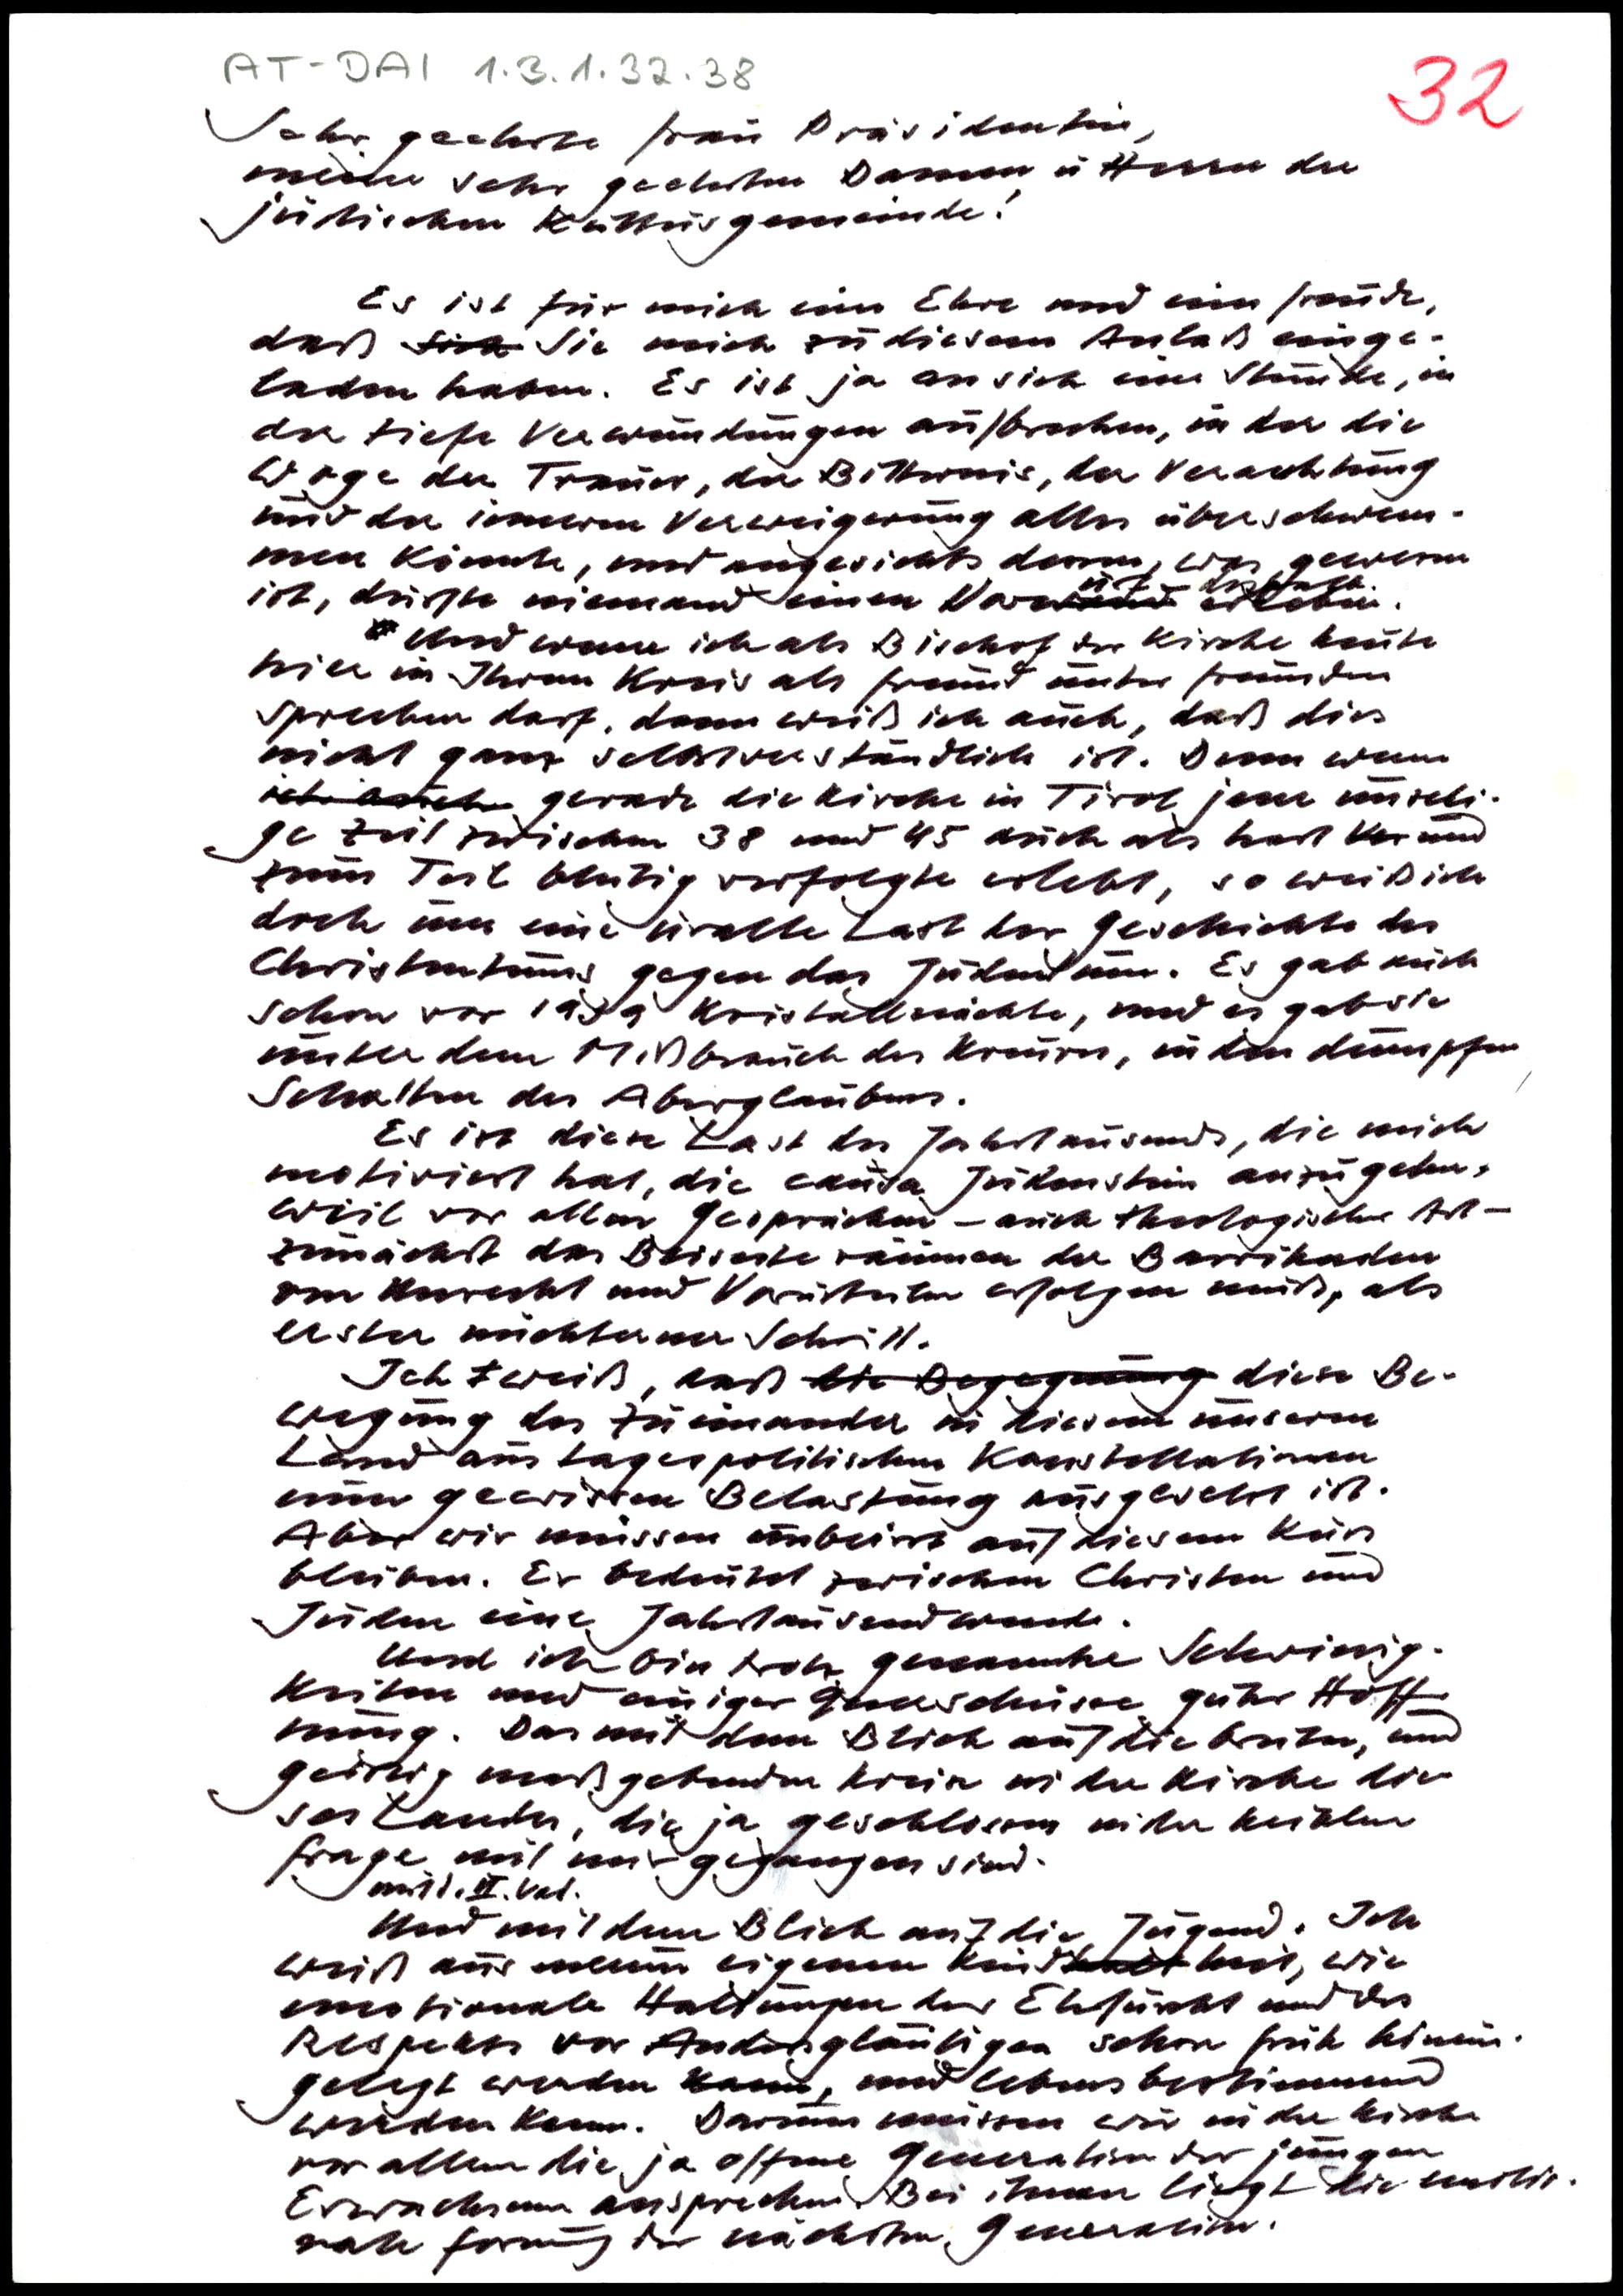 AT-DAI 1.3.1.32.38
32
Sehr geehrte Frau Präsidentin,
meine sehr geehrten Damen u Herrn der
jüdischen Kultusgemeinde!
Es ist für mich eine Ehre und eine Freude,
daß sich Sie mich zu diesem Anlaß einge-
laden haben. Es ist ja an sich eine Stunde, in
der tiefe Verwundungen aufbrechen, in der die
Woge der Trauer, der Bitternis, der Verachtung
und der inneren Verweigerung alles überschwem-
men könnte, und angesichts dessen, was gewesen
ist, dürfte niemand einen Vorwurf deshalb erheben.
Und wenn ich als Bischof der Kirche heute
hier in Ihrem Kreis als Freund unter Freunden
sprechen darf, dann weiß ich auch, daß dies
nicht ganz selbstverständlich ist. Denn wenn
ich auch gerade die Kirche in Tirol jene unseli-
ge Zeit zwischen 38 und 45 auch als hart Ver und
zum Teil blutig verfolgte erlebt, so weiß ich
doch um eine uralte Last der Geschichte des
Christentums gegen das Judentum. Es gab auch
schon vor 1939 Kristallnächte, und es gab sie
unter dem Mißbrauch des Kreuzes, in den dumpfen
Schatten des Aberglaubens.
Es ist diese Last des Jahrtausends, die mich
motiviert hat, die causa Judenstein anzugehen,
weil vor allen Gesprächen – auch theologischer Art –
zunächst das Beiseiteräumen der Barrikaden
von Unrecht und Vorurteilen erfolgen muß, als
erster nüchterner Schritt.
Ich weiß, daß die Begegnung diese Be-
wegung des Zueinander in diesem unserem
Land aus tagespolitischen Konstellationen
einer gewissen Belastung ausgesetzt ist.
Aber wir müssen unbeirrt auf diesem Kurs
bleiben. Er bedeutet zwischen Christen und
Juden eine Jahrtausendwende.
Und ich bin trotz genannter Schwierig-
keiten und einiger Querschüsse guter Hoff-
nung. Das mit dem Blick auf die breiten, und
geistig maßgebenden Kreise in der Kirche die-
ses Landes, die ja geschlossen in der heiklen
Frage mit mir gegangen sind.
II. Vat.
Und mit dem Blick auf die Jugend. Ich
weiß aus meiner eigenen Kindheit, wie
emotionale Haltungen der Ehrfurcht und des
Respekts vor Andersgläubigen schon früh hinein-
gelegt werden kann, und lebensbestimmend
werden kann. Darum müssen wir in der Kirche
vor allem die ja offene Generation der jungen
Erwachsenen ansprechen. Bei ihnen liegt die emotio-
nale Formung der nächsten Generation.